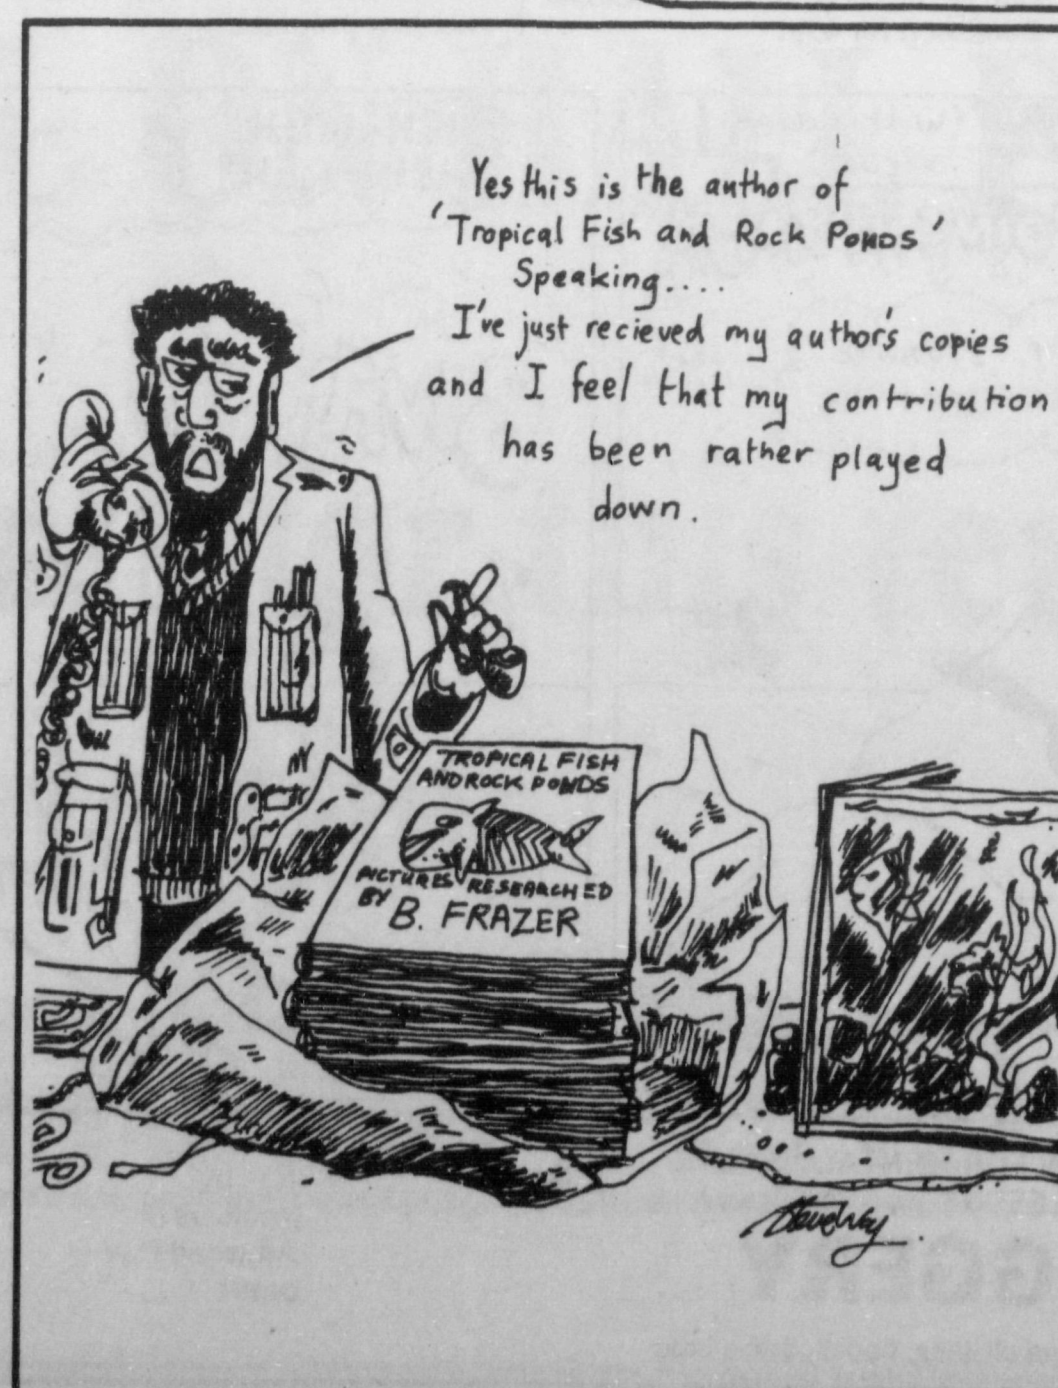 Yes this is the author of
'Tropical Fish and Rock Ponds'
Speaking....
I've just recieved my author's copies
and I feel that my contribution
has been rather played
down.
TROPICAL FISH
AND ROCK PONDS
PICTURES RESEARCHED
BY B. FRAZER